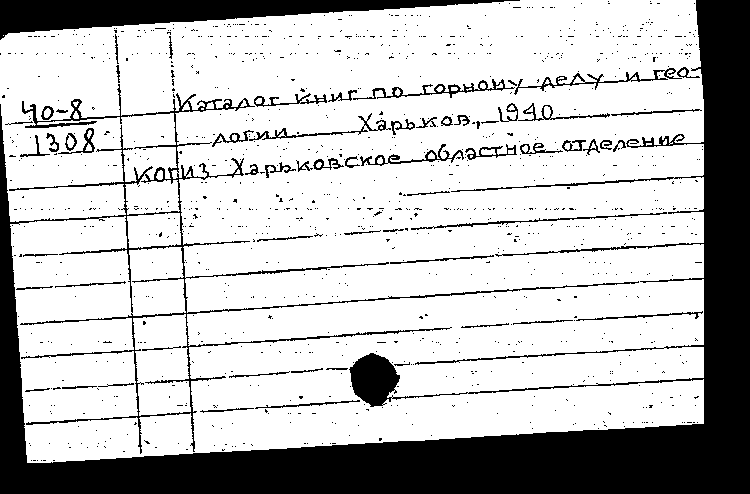 40-8
1308
Каталог книг по горному делу и гео-
логии. Харьков, 1940
КОГИЗ Харьковское областное отделение